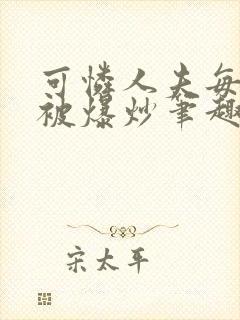 可怜人夫每
被爆炒笔趣
宋太平